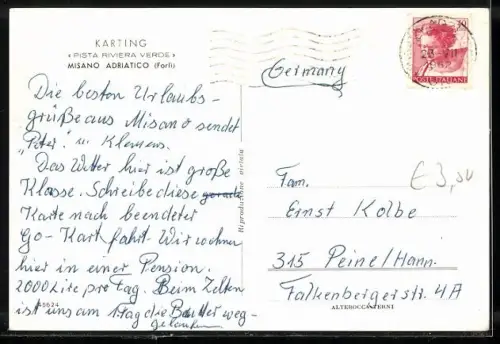 KARTING
« PISTA RIVIERA VERDE »
MISANO ADRIATICO (Forlì)
Die besten Urlaubs-
grüße aus Misano sendet
„Peter" u Klemens.
Das Wetter hier ist große
Klasse. Schreibe diese gerade
Karte nach beendeter
Go-Kart fahrt. Wir wohnen
hier in einer Pension.
2000 Lire pro Tag. Beim Zelten
ist uns am 1 Tag die Butter weg-
gelaufen
Germany
30
POSTE ITALIANE
€ 3,50
Fam.
Ernst Kolbe
315 Peine/Hann.
Falkenbergerstr. 4A
Riproduzione vietata
ALTEROCCA-TERNI